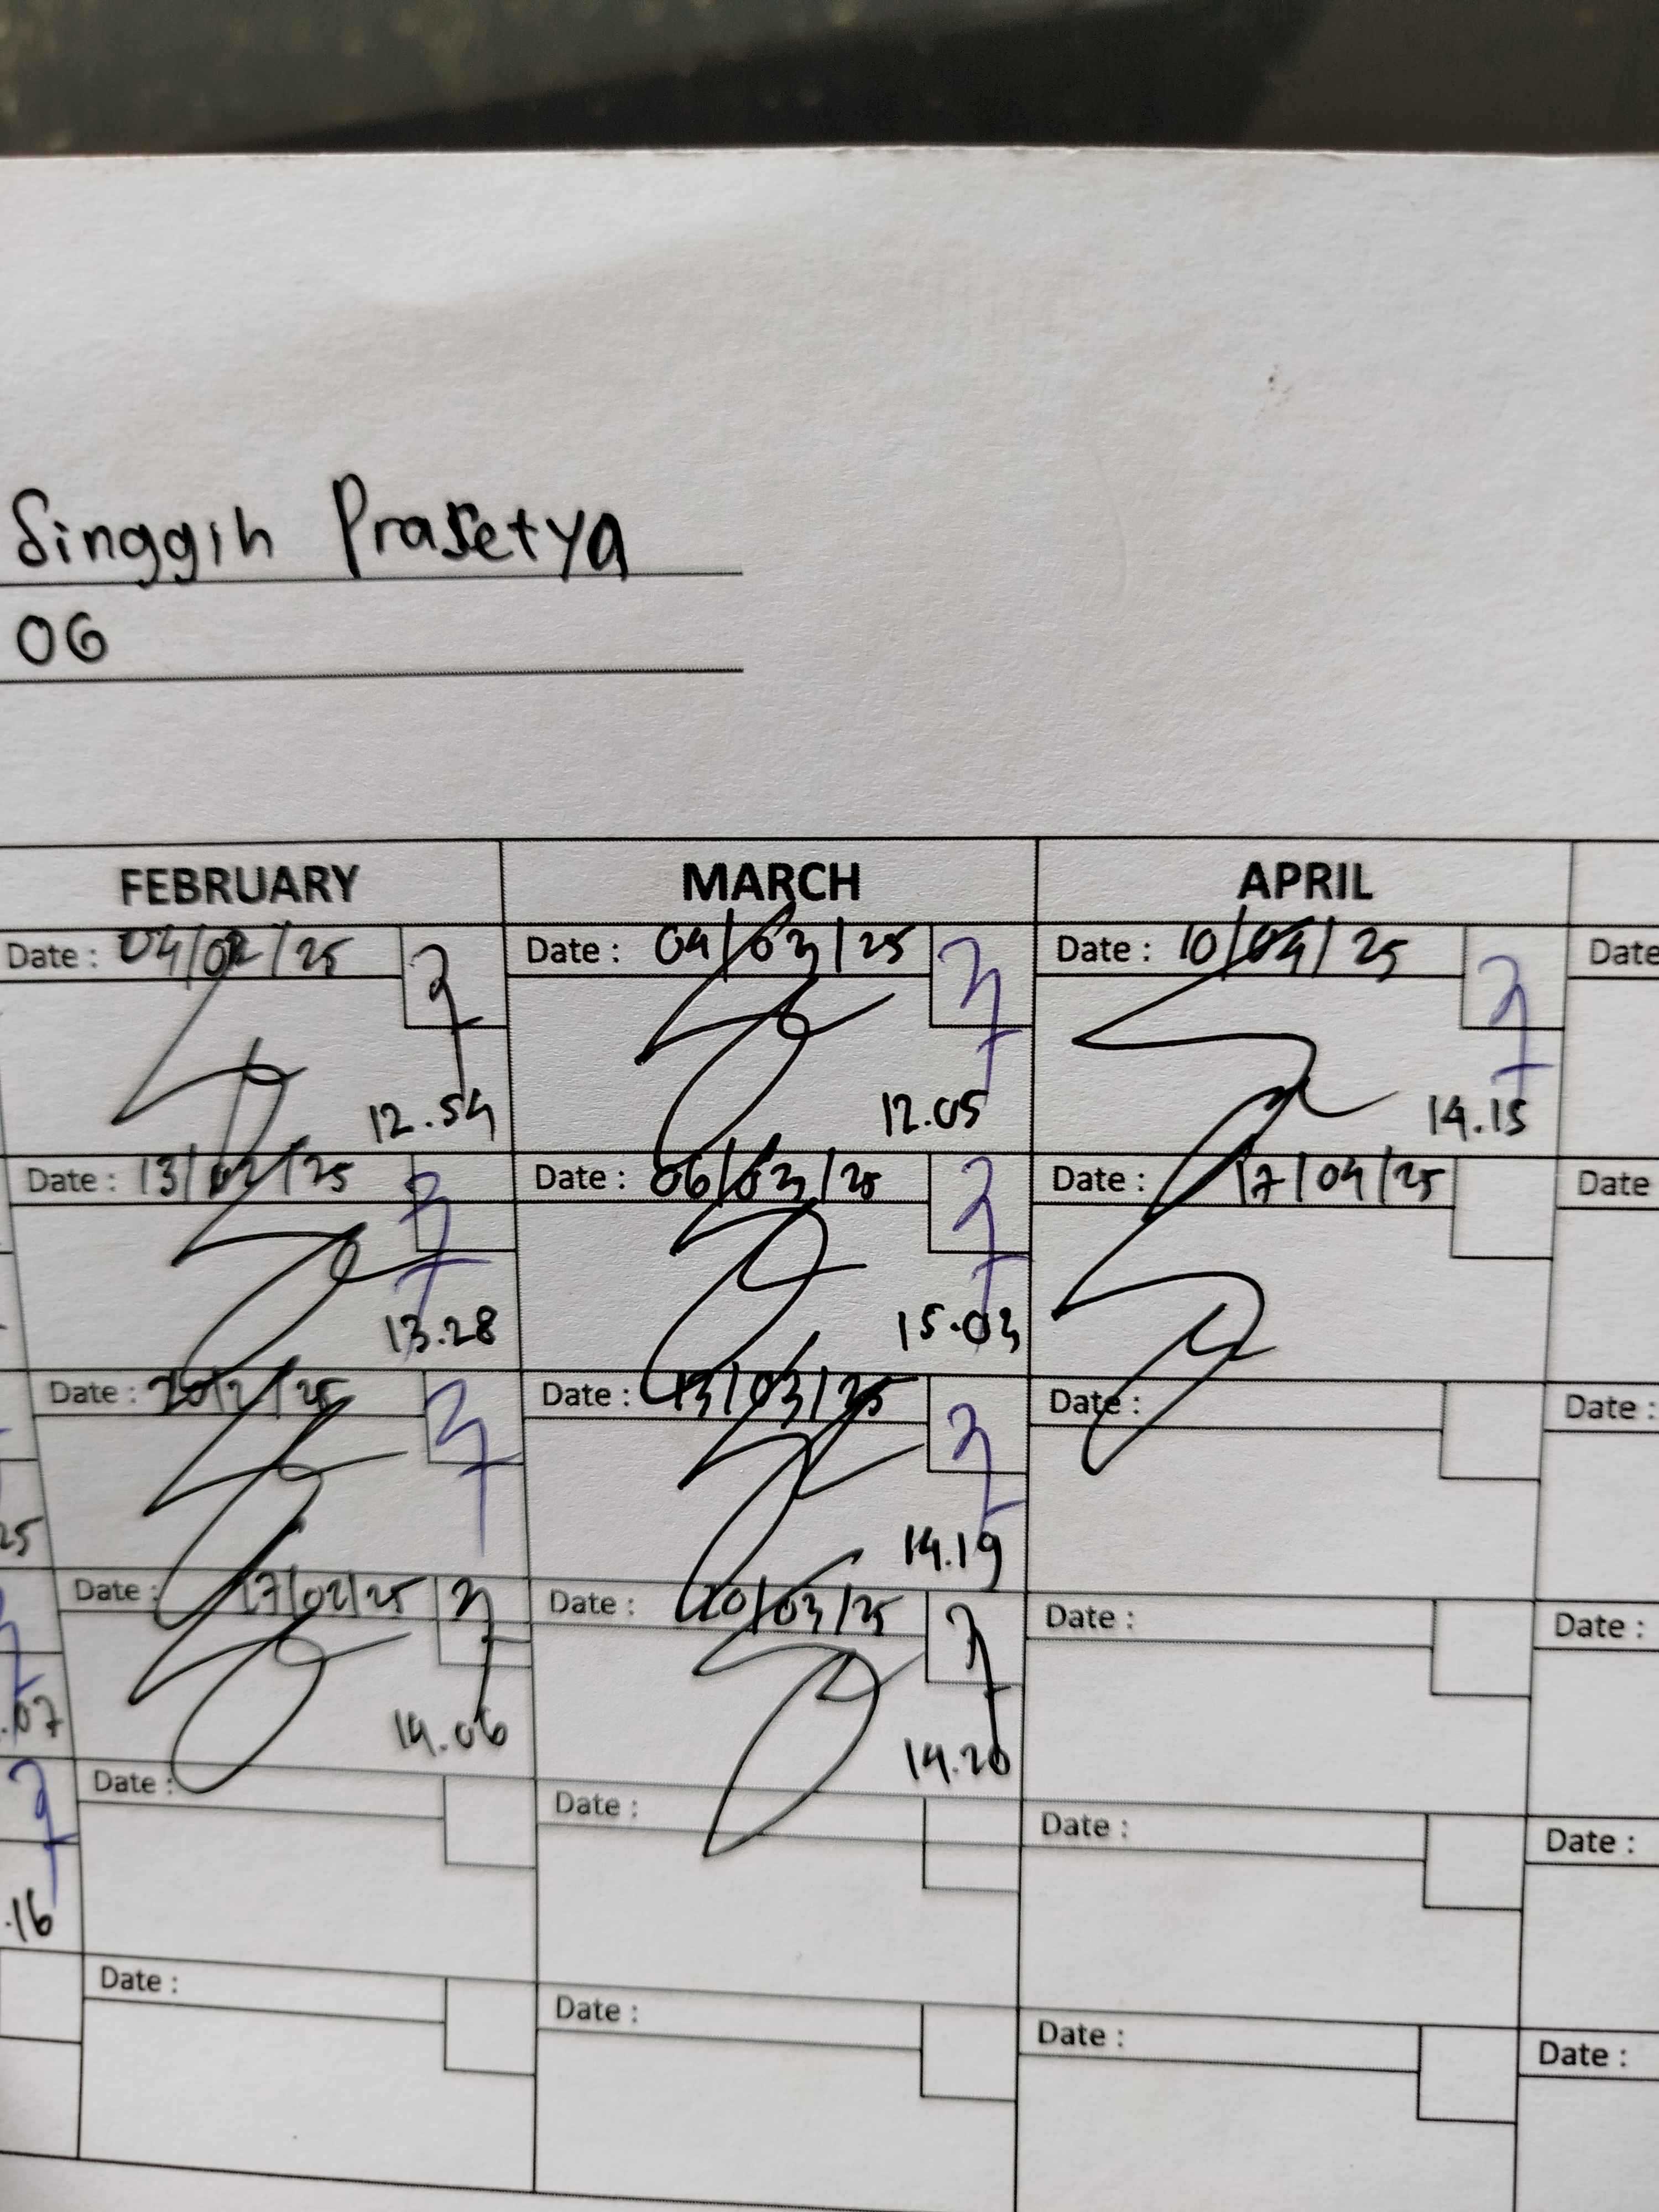 Singgih Prasetya
OG
FEBRUARY MARCH APRIL
Date : 04/02/25 Date : 04/03/25 Date : 10/04/25 Date
12.54 12.05 14.15
Date : 13/02/25 Date : 06/03/25 Date : 17/04/25 Date
13.28 15.03
Date : 20/2/25 Date : 13/03/25 Date : Date :
25 14.19
Date : 17/02/25 Date : 20/03/25 Date : Date :
.07 14.06 14.20
Date : Date : Date : Date :
.16
Date : Date : Date : Date :